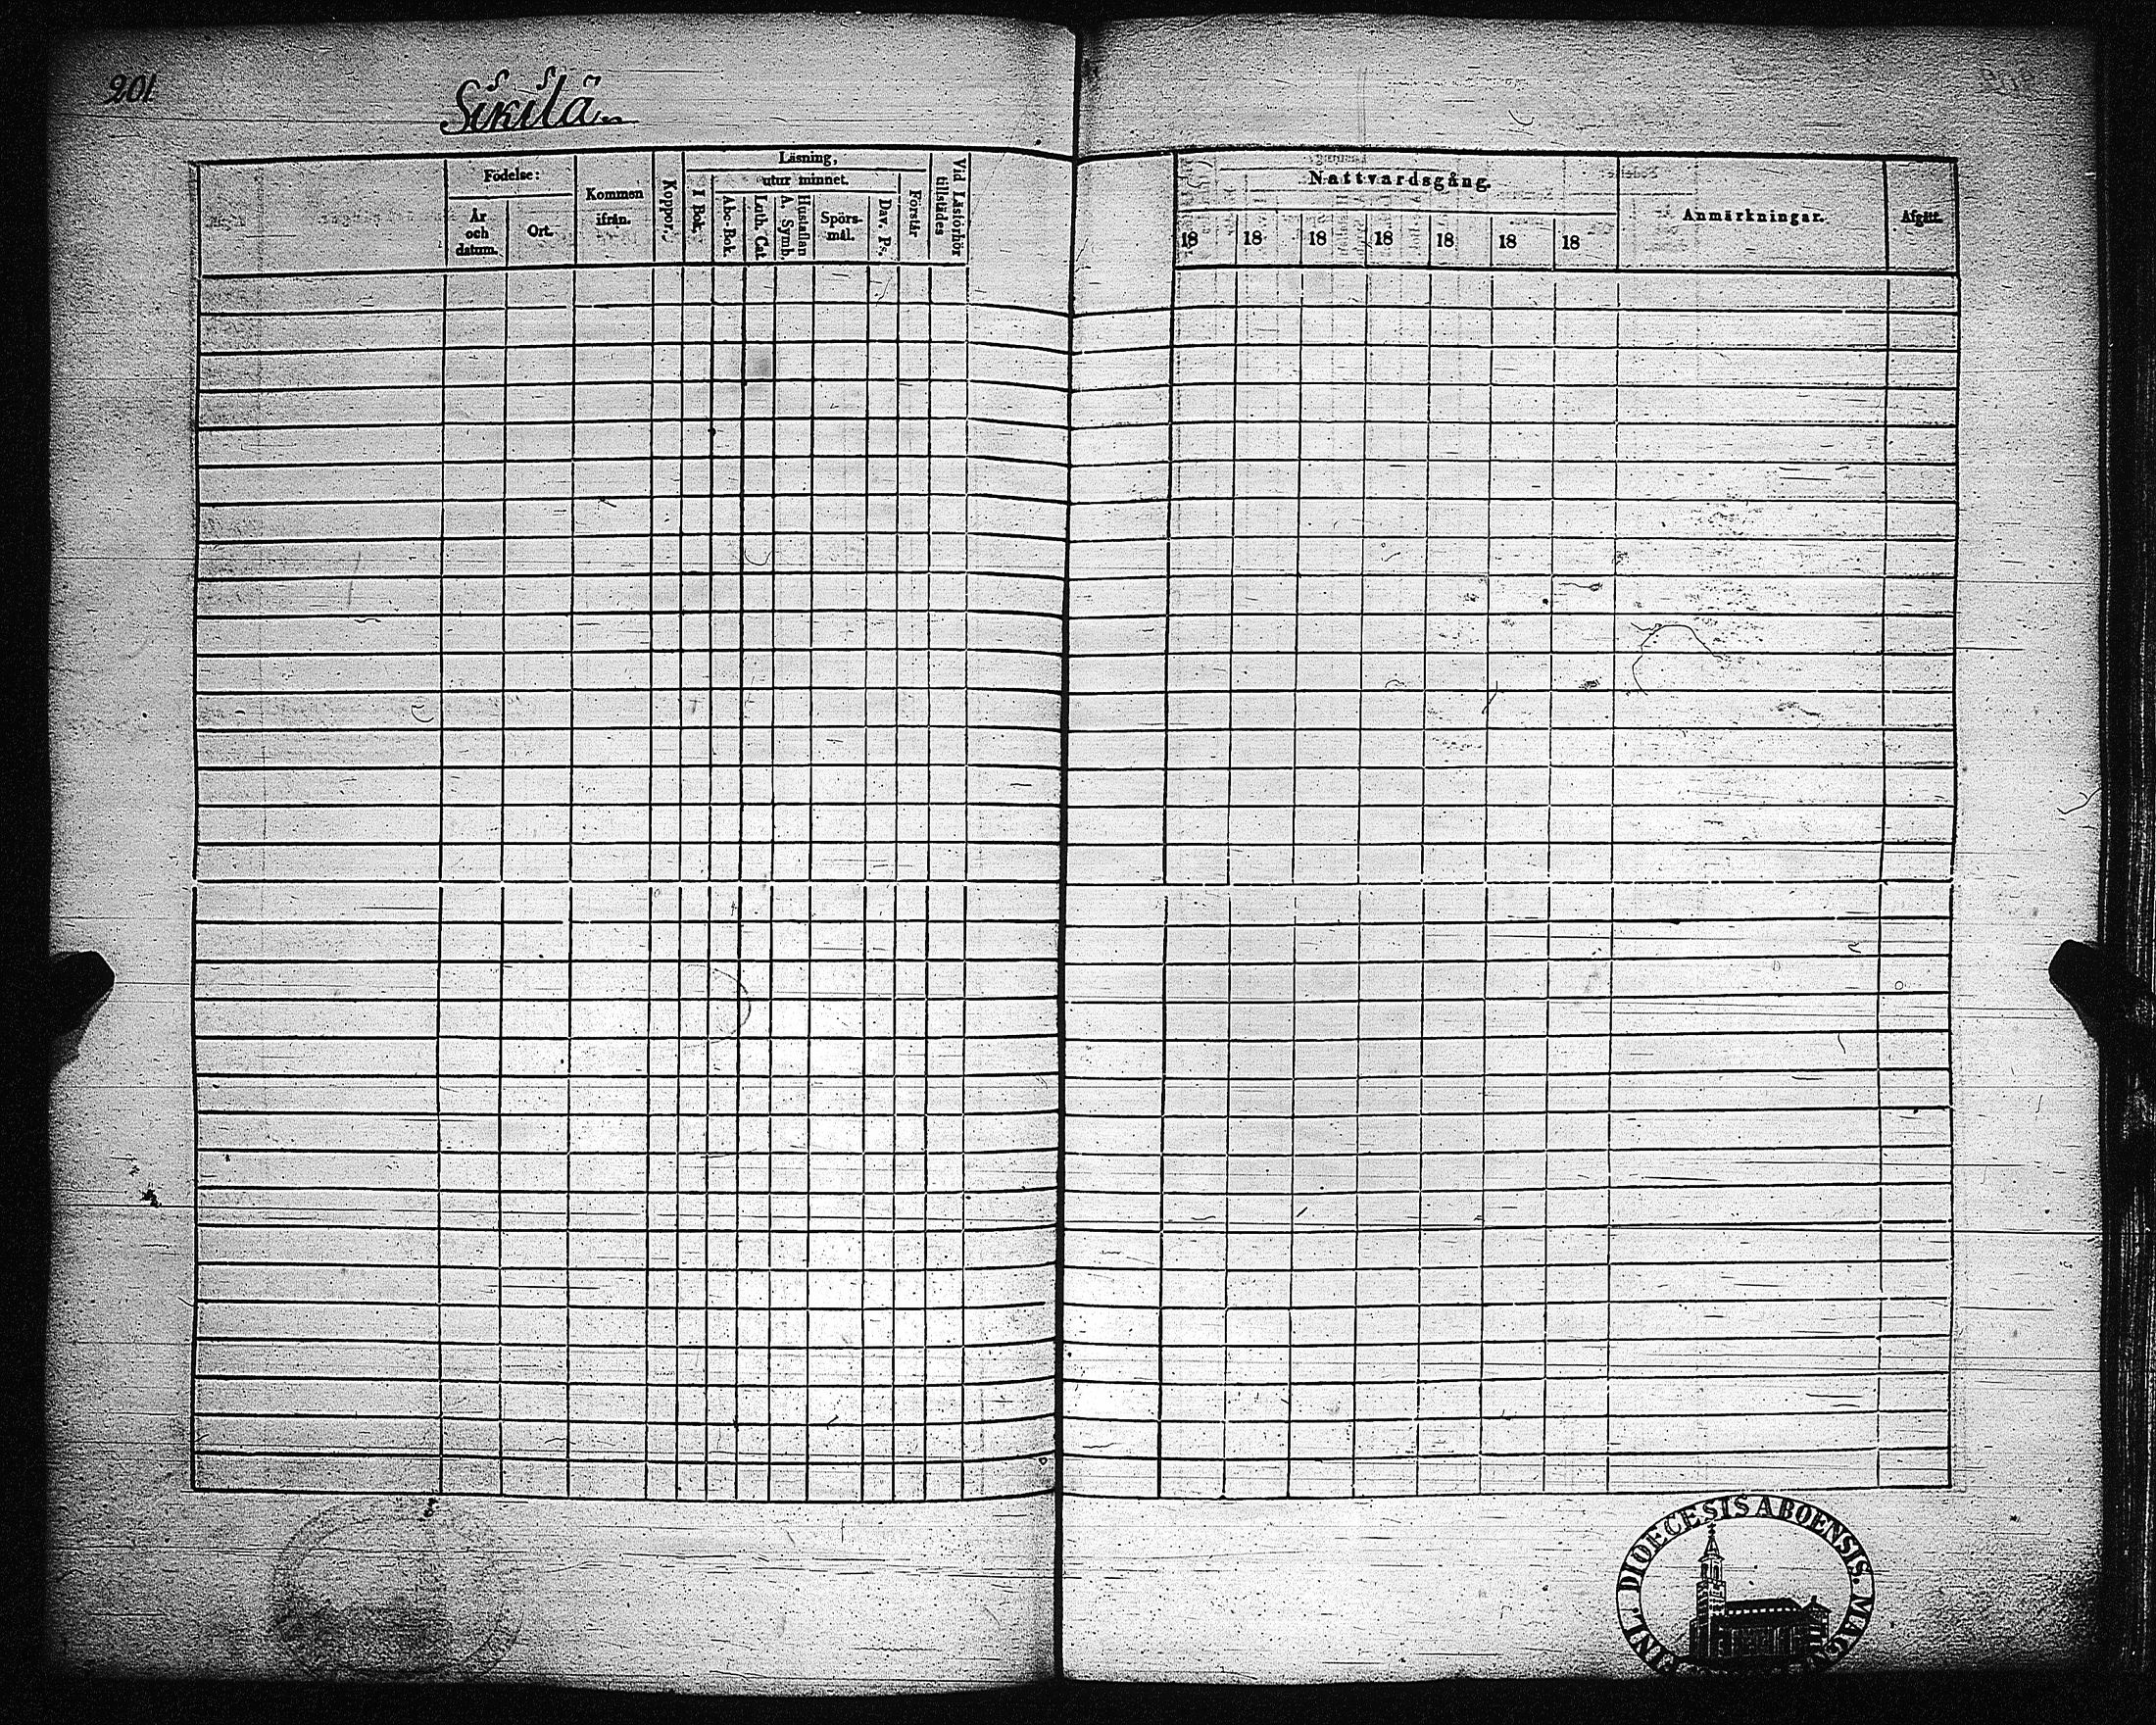 201.
Sikilä.
Födelse:
År och datum.
Ort.
Kommen ifrån.
Koppor.
Läsning,
I Bok.
utur minnet.
Abc-Bok.
Luth. Cat.
Hustaflan A. Symb.
Spörs-mål.
Dav. Ps.
Förstår
Vid Läsförhör tillstädes
Nattvardsgång.
18 18 18 18 18 18 18
Anmärkningar.
Afgått.
DIOECESIS ABOENSIS. MAG
FINL.